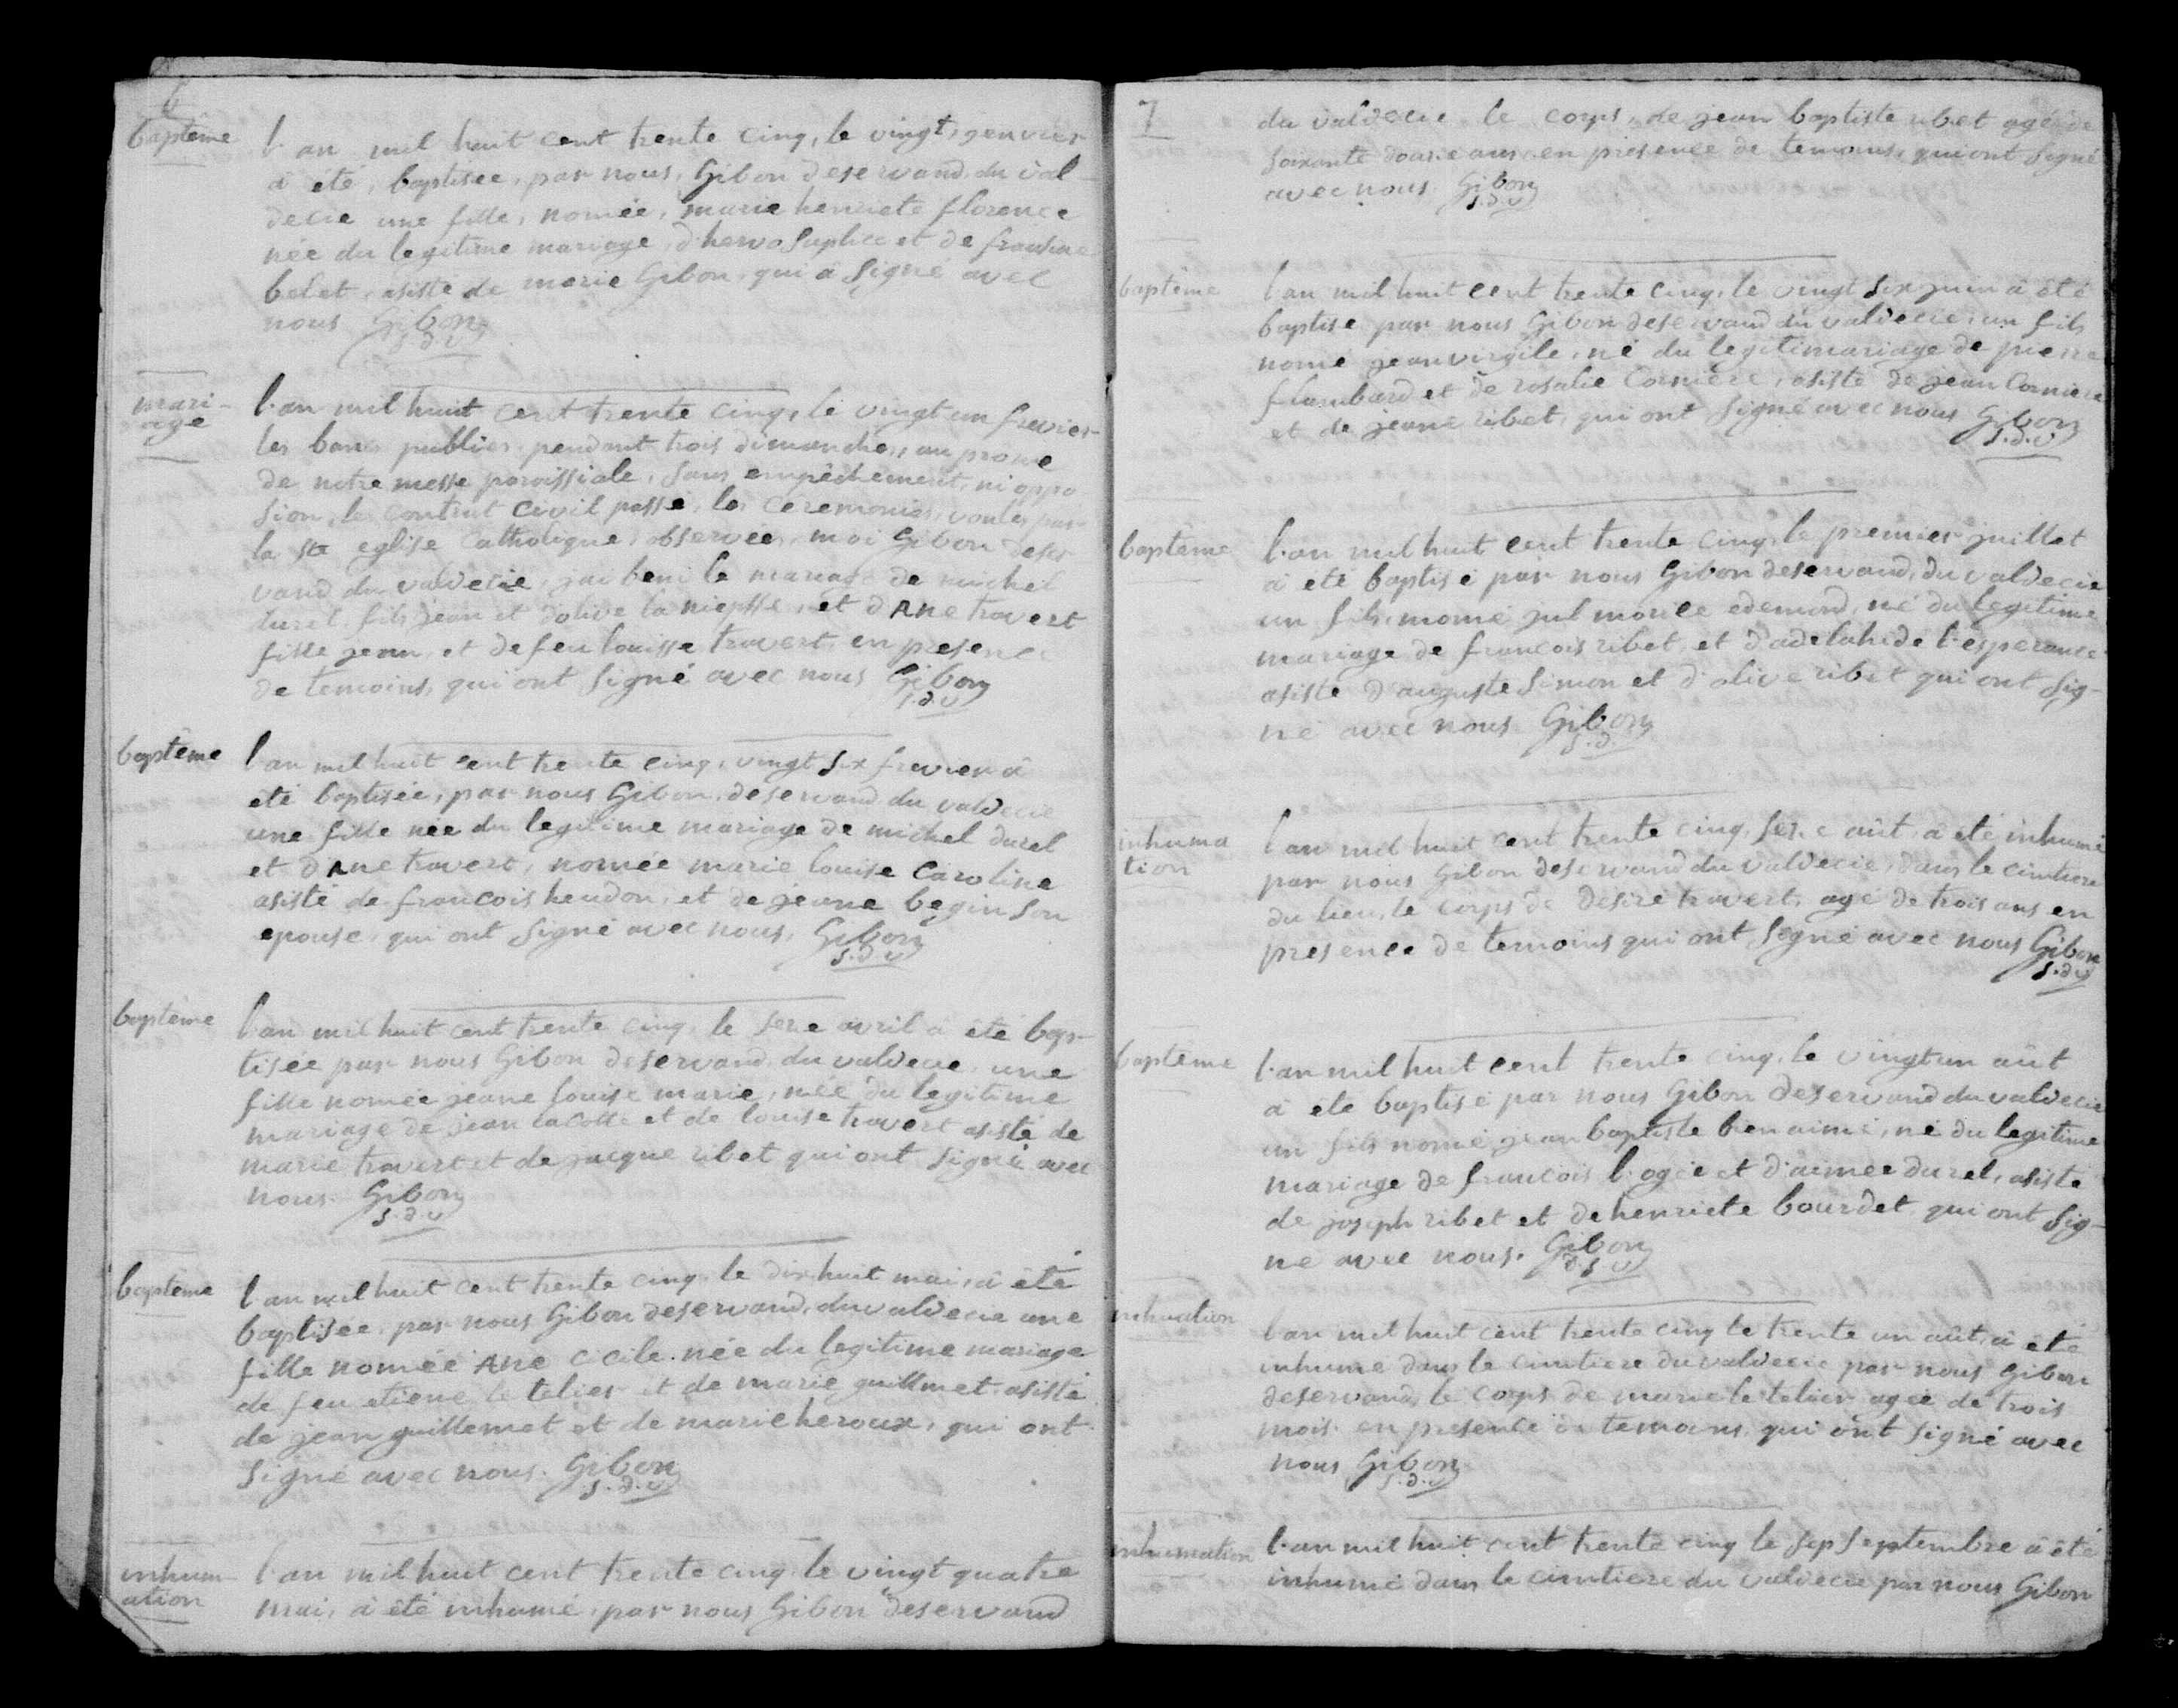 6
baptême
l'an mil huit cent trente cinq, le vingt, jenvier
à été, baptisée, par nous, Gibon deservand, du val
decie une fille, nomée, marie henriete florence
née du legitime mariage, d'herva Suplice et de fransine
belet, asisté de marie Gibon, qui à Signé avec
nous Gibon
s.d.v
mari-
age
l'an mil huit cent trente cinq, le vingt un fevrier
les bans publies, pendant trois dimanches, au prone
de notre messe paroissiale, sans empêchement, ni oppo
sion, le contrat civil passé, les ceremonies, voules par
la ste eglise Catholique, observées, moi Gibon deser
vand du valdecie, j'ai beni le mariage de michel
durel fils jean et dolive la niepsse, et d'Ane travert
fille jean, et de feu louisse travert, en presence
de temoins, qui ont Signé avec nous Gibon
s.d.v
baptême
l'an mil huit cent trente cinq, vingt six frevrier à
été baptisée, par nous Gibon, deservand du valdecie
une fille née du legitime mariage de michel durel
et d'Ane travert, nomée marie louise Caroline
asisté de francois heudon, et de jeane begin son
epouse, qui ont Signé avec nous, Gibon
s.d.v
baptême
l'an mil huit cent trente cinq, le sese avril à été bap-
tisée par nous Gibon deservand, du valdecie, une
fille nomée jeane louise marie, née du legitime
mariage de jean lacotte et de louise travert asisté de
marie travert et de jacque ribet qui ont Signé avec
nous. Gibon
s.d.v
baptême
l'an mil huit cent trente cinq, le dix huit mai, à été
baptisée, par nous Gibon deservand, du valdecie une
fille nomée Ane cicile née du legitime mariage
de feu etiene le telier et de marie guillmet, asisté
de jean guillemet et de marie heroux, qui ont
Signé avec nous. Gibon
s.d.v
inhum-
ation
l'an mil huit cent trente cinq le vingt quatre
mai, à été inhumé, par nous Gibon deservand
7
du valdecie le corps, de jean baptiste ribet agé de
soixante douse ans, en presence de temoins, qui ont Signé
avec nous Gibon
s.d.v
baptême
l'an mil huit cent trente cinq, le vingt six juin à été
baptisé par nous Gibon deservand du valdecie, un fils
nomé jean virgile, né du legitimariage de pierre
flambard et de rosalie Corniere, asisté de jean Corniere
et de jeane ribet, qui ont Signé avec nous Gibon
s.d.v
baptême
l'an mil huit cent trente cinq, le premier juillet
à été baptisé par nous Gibon deservand, du valdecie
un fils, nomé jul morice edemond, né du legitime
mariage de francois ribet, et d'adelahide l'esperance
asisté d'auguste Simon et d'olive ribet qui ont Sig-
né avec nous Gibon
s.d.
inhuma
tion
l'an mil huit cent trente cinq, sese aût, à été inhumé
par nous Gibon deservand du valdecie, dans le cimtiere
du lieu, le corps de desiré travert, agé de trois ans en
presence de temoins qui ont Segné avec nous Gibon
s.d.v
baptême
l'an mil huit cent trente cinq, le vingt un aût
à été baptisé par nous Gibon deservand du valdecie
un fils nomé, jean baptiste bien aimé, né du legitime
mariage de francois l'ogée et d'aimée durel, asisté
de joseph ribet et de henriete bourdet qui ont Sig-
né avec nous. Gibon
d.s v
inhuation
l'an mil huit cent trente cinq le trente un aût, à été
inhumé dans le cimtiere du valdecie par nous Gibon
deservand, le corps de marie le telier agée de trois
mois en presence de temoins qui ont Signé avec
nous Gibon
s.d.v
inhumation
l'an mil huit cent trente cinq le sep septembre à été
inhumé dans le cimtiere du valdecie par nous Gibon